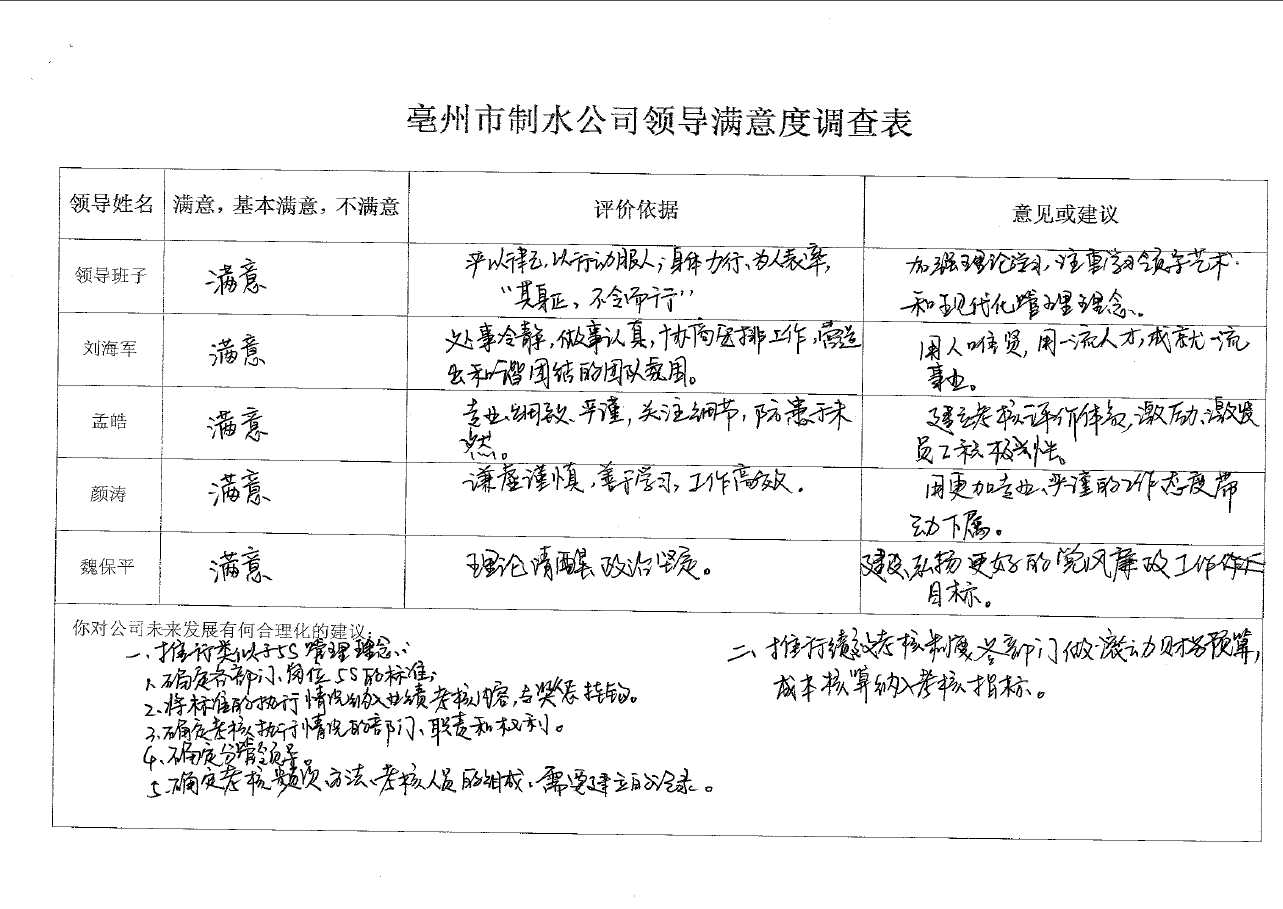 亳州市制水公司领导满意度调查表
领导姓名 满意，基本满意，不满意 评价依据 意见或建议
领导班子 满意 严以律己，以行动服人；身体力行、为人表率， 加强理论学习，注重学习领导艺术
"其身正，不令而行" 和现代化管理理念。
刘海军 满意 处事冷静，做事认真，协商安排工作，营造 用人唯贤，用一流人才，成就一流
出和谐团结的团队氛围。 事业。
孟皓 满意 专业、细致、严谨，关注细节，防患于未 建立考核评价体系，激励、激发
然。 员工积极性。
颜涛 满意 谦虚谨慎，善于学习，工作高效。 用更加专业、严谨的工作态度带
动下属。
魏保平 满意 理论清醒 政治坚定。 建设、弘扬更好的党风廉政工作
目标。
你对公司未来发展有何合理化的建议：
一、推行类似于5S管理理念：
1、确定各部门、岗位5S的标准；
2、将标准的执行情况纳入业绩考核内容，与奖惩挂钩。
3、确定考核执行情况的部门、职责和权利。
4、确定分管领导
5、确定考核频次、方法、考核人员的组成、需要建立的记录。
二、推行绩效考核制度，各部门做滚动财务预算，
成本核算纳入考核指标。